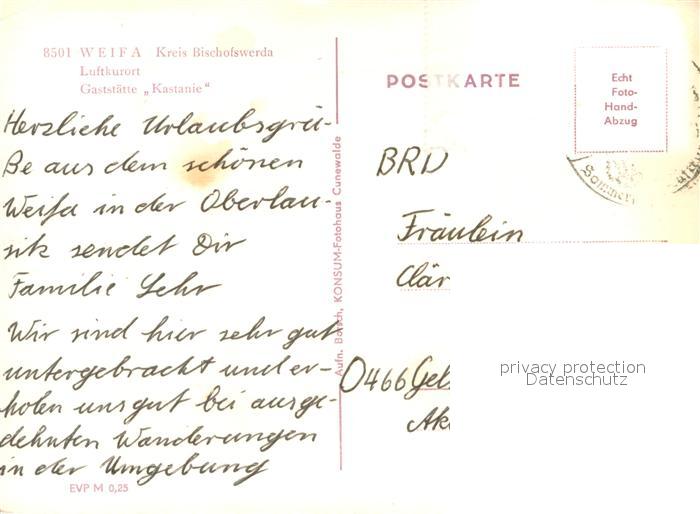 8501 WEIFA Kreis Bischofswerda
Luftkurort
Gaststätte „Kastanie"
Herzliche Urlaubsgrü-
ße aus dem schönen
Weifa in der Oberlau-
sitz sendet Dir
Familie Lehr
Wir sind hier sehr gut
untergebracht und er-
holen uns gut bei ausge-
dehnten Wanderungen
in der Umgebung
EVP M 0,25
Aufn. Borsch, KONSUM-Fotohaus Cunewalde
POSTKARTE
Echt
Foto-
Hand-
Abzug
BRD
Fräulein
Clär
0466 Gels
Ak
privacy protection
Datenschutz